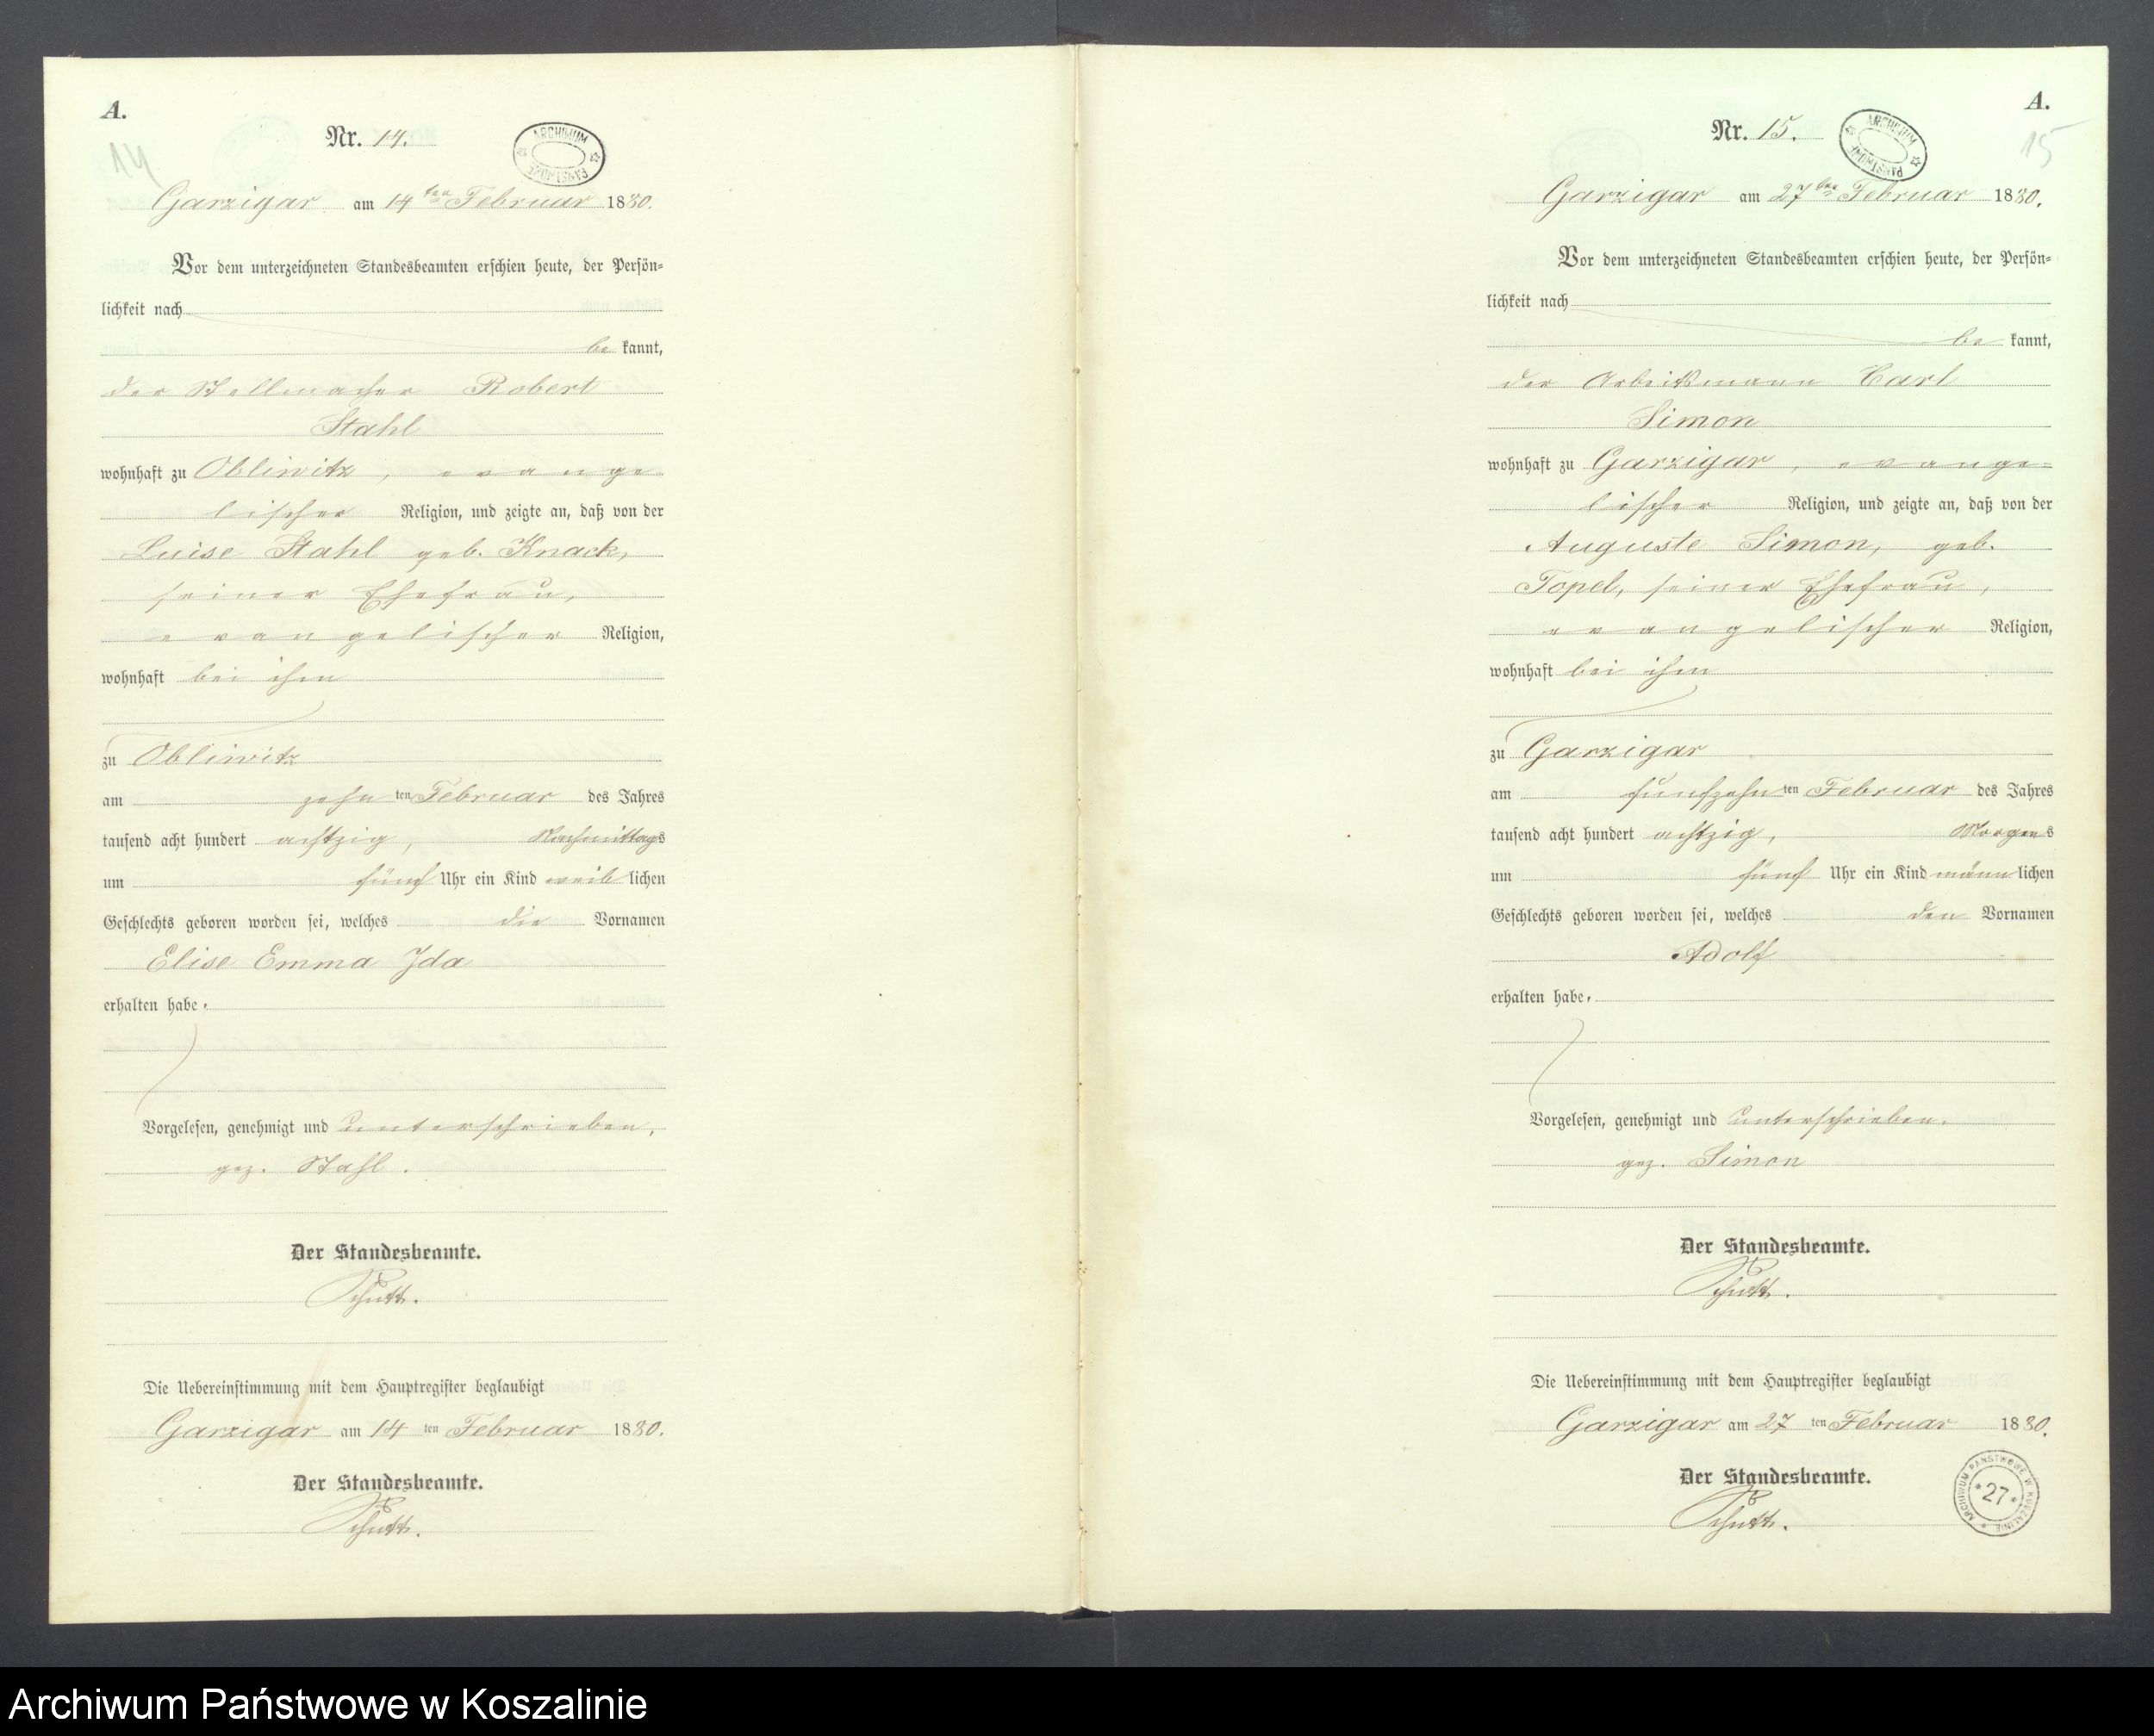 A.
14
Nr. 14.
ARCHIWUM PAŃSTWOWE
Garzigar am 14ten Februar 1880.
Vor dem unterzeichneten Standesbeamten erschien heute, der Persön-
lichkeit nach
be kannt,
der Stellmacher Robert
Stahl
wohnhaft zu Obliwitz, evange-
lischer Religion, und zeigte an, daß von der
Luise Stahl geb. Knack,
seiner Ehefrau,
evangelischer Religion,
wohnhaft bei ihm
zu Obliwitz
am zehn ten Februar des Jahres
tausend acht hundert achtzig, Nachmittags
um fünf Uhr ein Kind weib lichen
Geschlechts geboren worden sei, welches die Vornamen
Elise Emma Ida
erhalten habe.
Vorgelesen, genehmigt und unterschrieben,
gez. Stahl.
Der Standesbeamte.
Schutt.
Die Uebereinstimmung mit dem Hauptregister beglaubigt
Garzigar am 14 ten Februar 1880.
Der Standesbeamte.
Schutt.
A.
15
Nr. 15.
ARCHIWUM PAŃSTWOWE
Garzigar am 27ten Februar 1880.
Vor dem unterzeichneten Standesbeamten erschien heute, der Persön-
lichkeit nach
be kannt,
der Arbeitsmann Carl
Simon
wohnhaft zu Garzigar, evange-
lischer Religion, und zeigte an, daß von der
Auguste Simon, geb.
Topel, seiner Ehefrau,
evangelischer Religion,
wohnhaft bei ihm
zu Garzigar
am funfzehn ten Februar des Jahres
tausend acht hundert achtzig, Morgens
um fünf Uhr ein Kind männ lichen
Geschlechts geboren worden sei, welches den Vornamen
Adolf
erhalten habe.
Vorgelesen, genehmigt und unterschrieben.
gez. Simon
Der Standesbeamte.
Schutt.
Die Uebereinstimmung mit dem Hauptregister beglaubigt
Garzigar am 27 ten Februar 1880.
Der Standesbeamte.
Schutt.
ARCHIWUM PAŃSTWOWE W KOSZALINIE
*27*
Archiwum Państwowe w Koszalinie